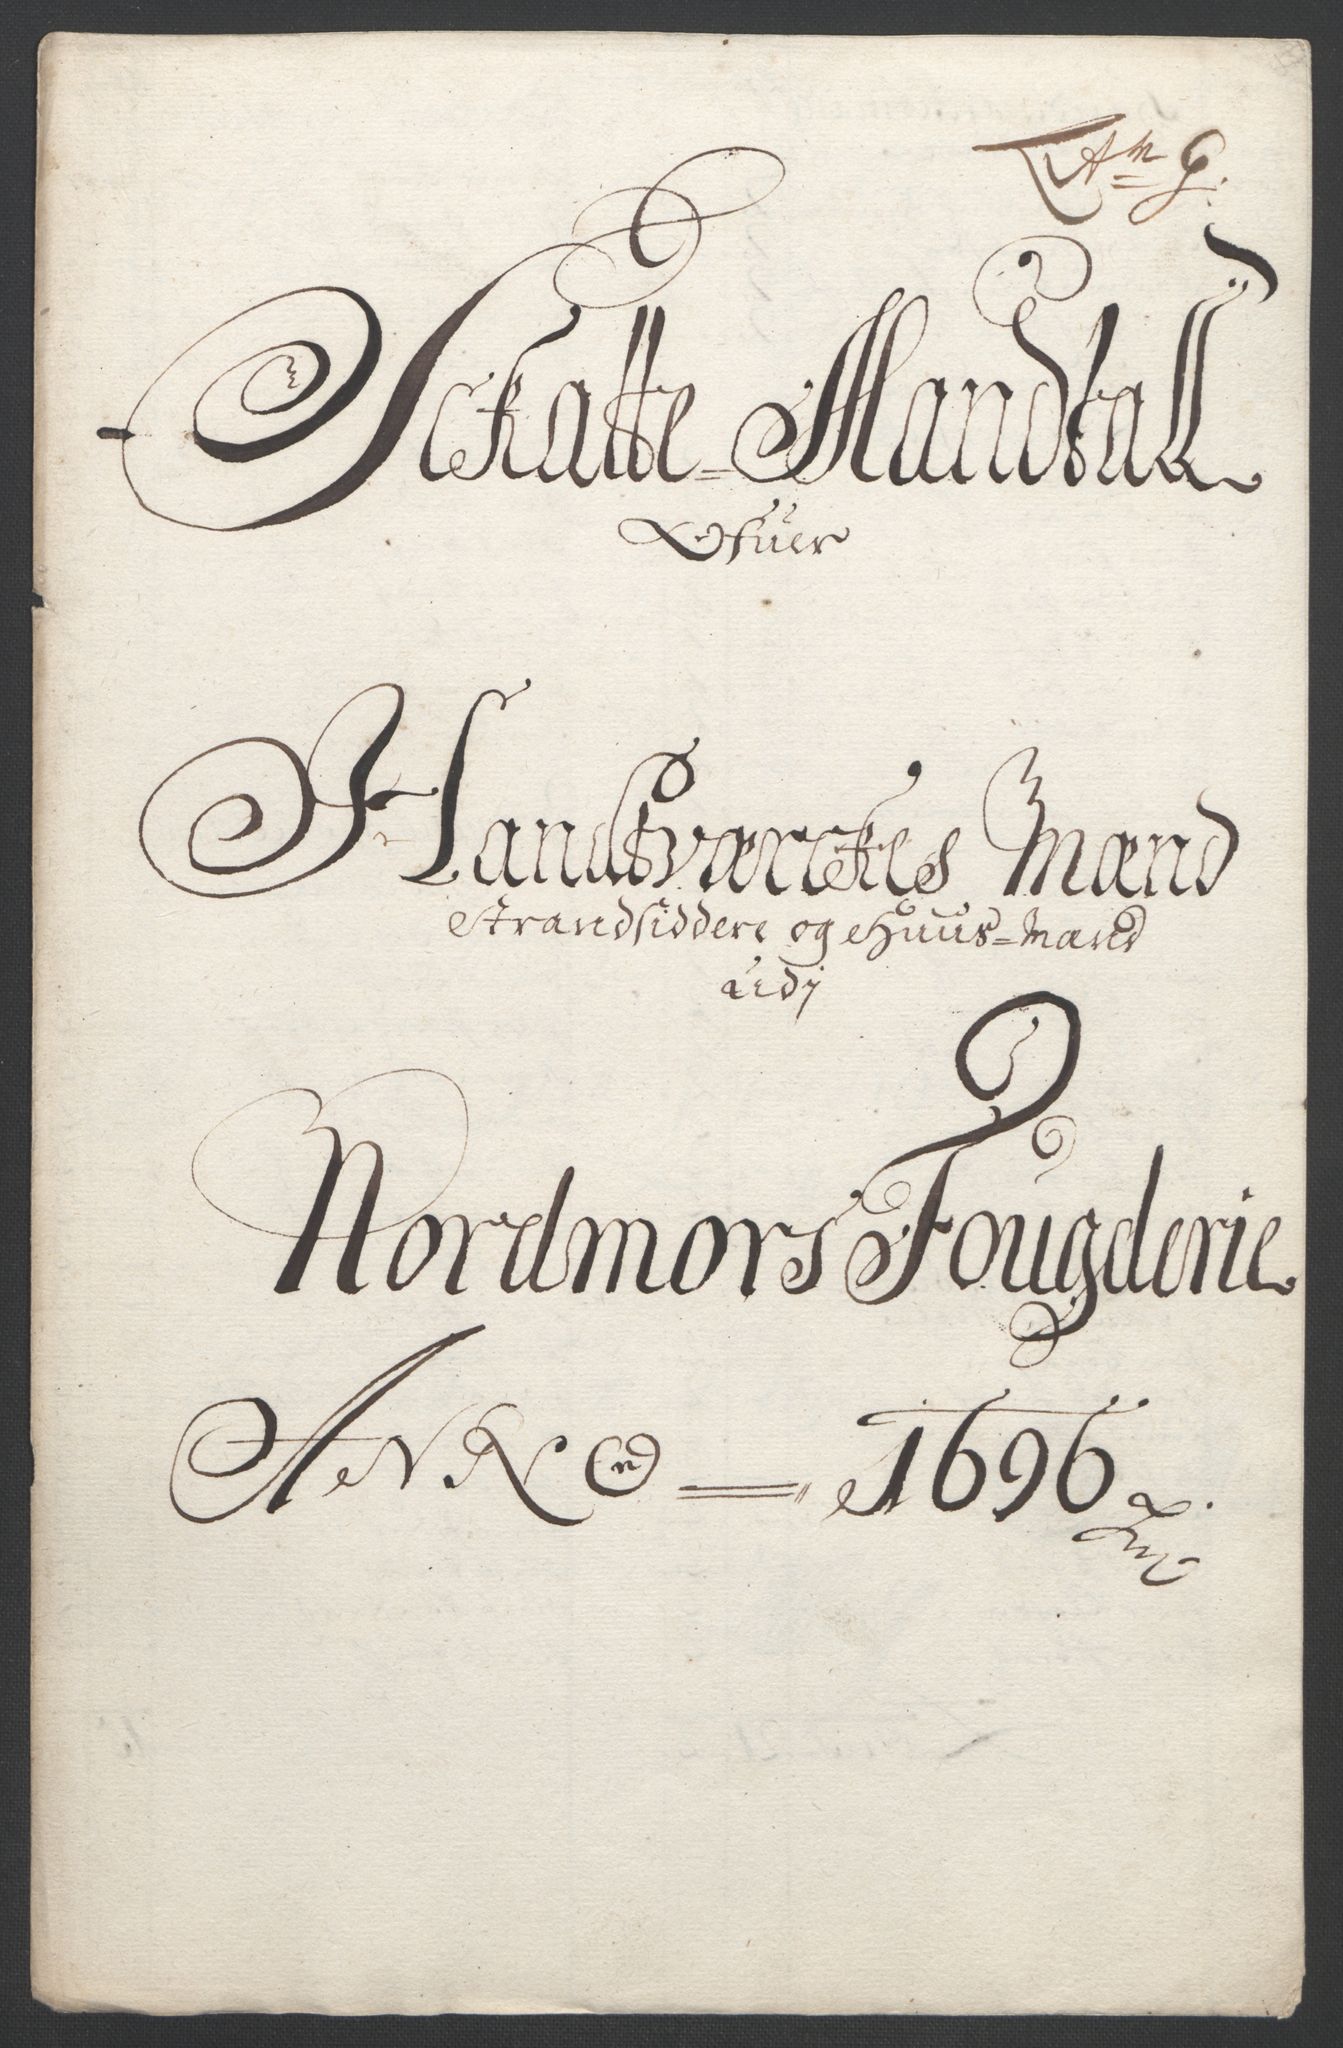 Schatte-Mandtall
Ofuer
Handtværckes Mænd
strandsiddere og Huus-Mænd
udj
Nordmors Fougderie
Anno 1696